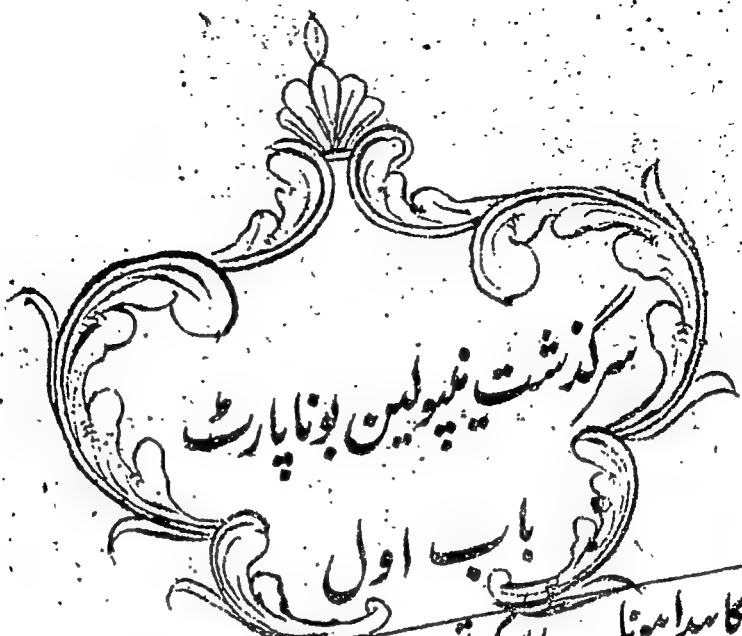 سرگذشت نپولین بوناپارٹ
باب اول
کا پیدا ہونا